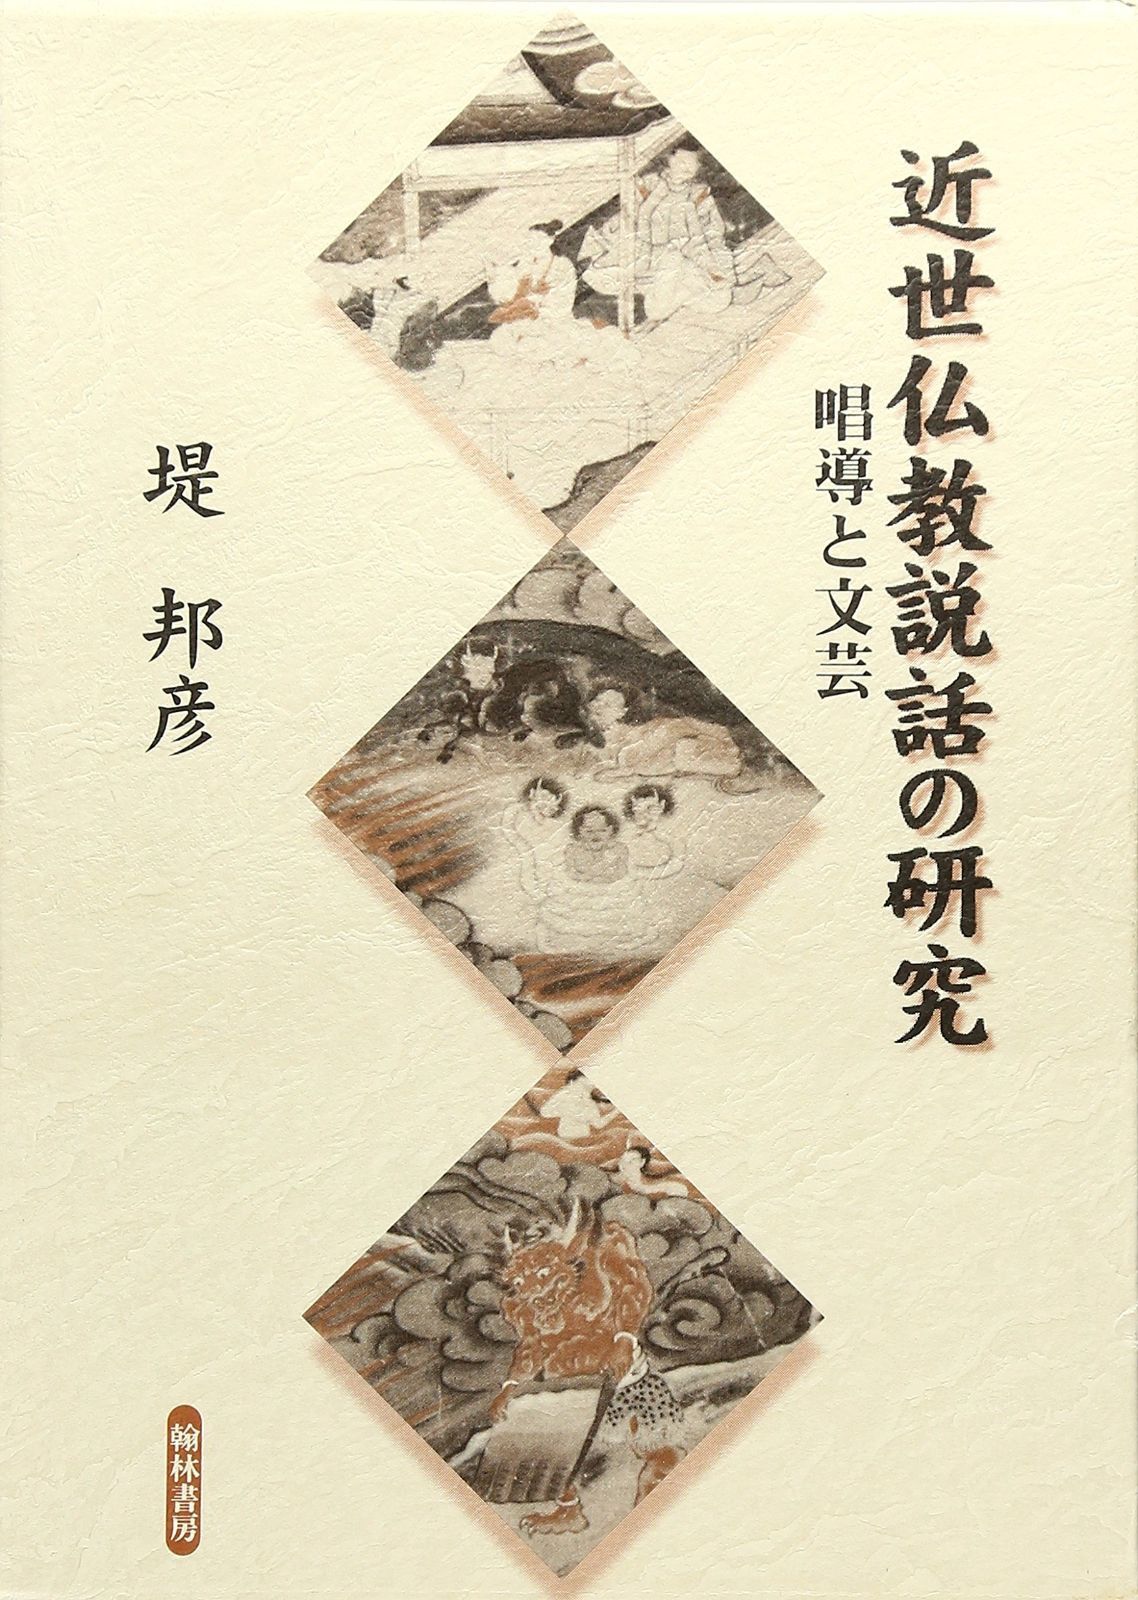 近世仏教説話の研究
唱導と文芸
堤 邦彦
翰林書房